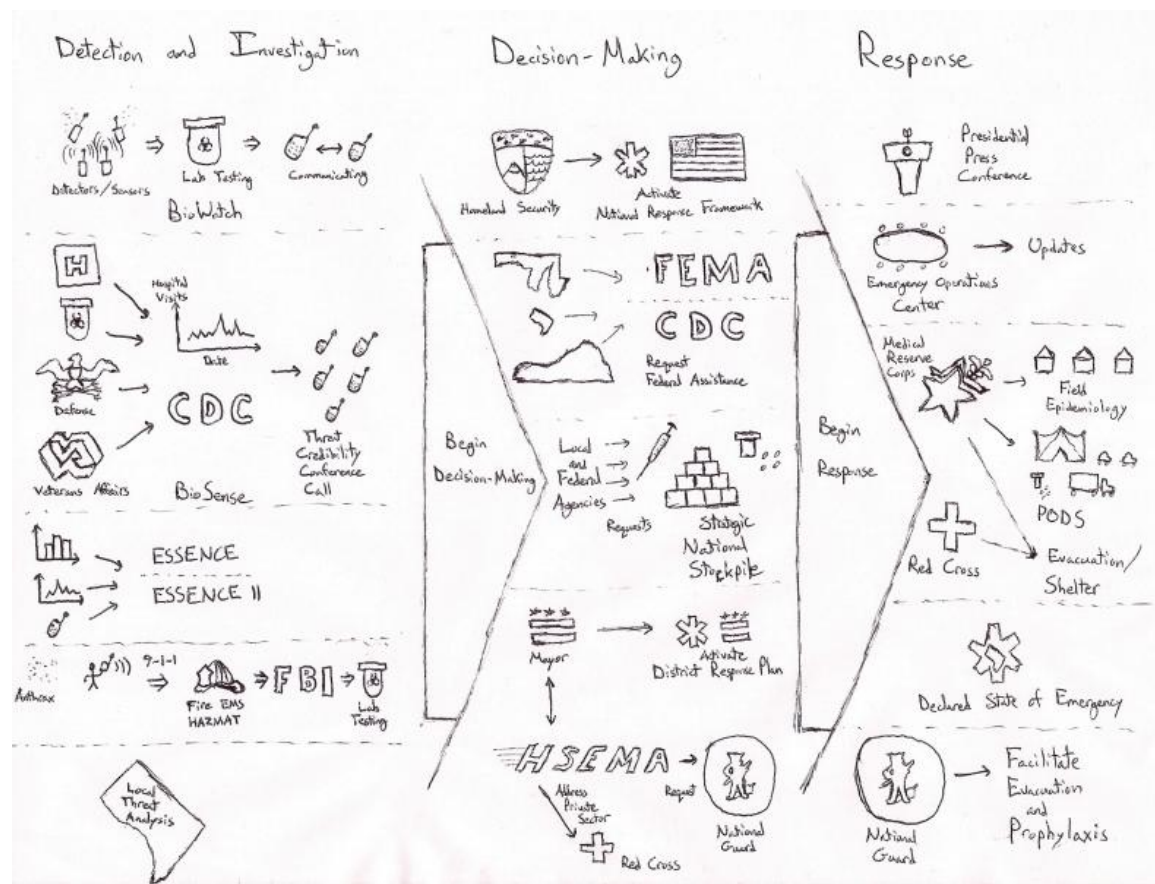 Detection and Investigation
Detectors/Sensors
Lab Testing
Communicating
BioWatch
H
Hospital
Visits
Date
Defense
CDC
Veterans Affairs
BioSense
Threat
Credibility
Conference
Call
ESSENCE
ESSENCE II
Anthrax
9-1-1
Fire EMS
HAZMAT
FBI
Lab
Testing
Local
Threat
Analysis
Begin
Decision-Making
Decision-Making
Homeland Security
Activate
National Response Framework
FEMA
CDC
Request
Federal Assistance
Local
and
Federal
Agencies
Requests
Strategic
National
Stockpile
Mayor
Activate
District Response Plan
HSEMA
Address
Private
Sector
Red Cross
Request
National
Guard
Begin
Response
Response
Presidential
Press
Conference
Emergency Operations
Center
Updates
Medical
Reserve
Corps
Field
Epidemiology
PODS
Red Cross
Evacuation/
Shelter
Declared State of Emergency
National
Guard
Facilitate
Evacuation
and
Prophylaxis